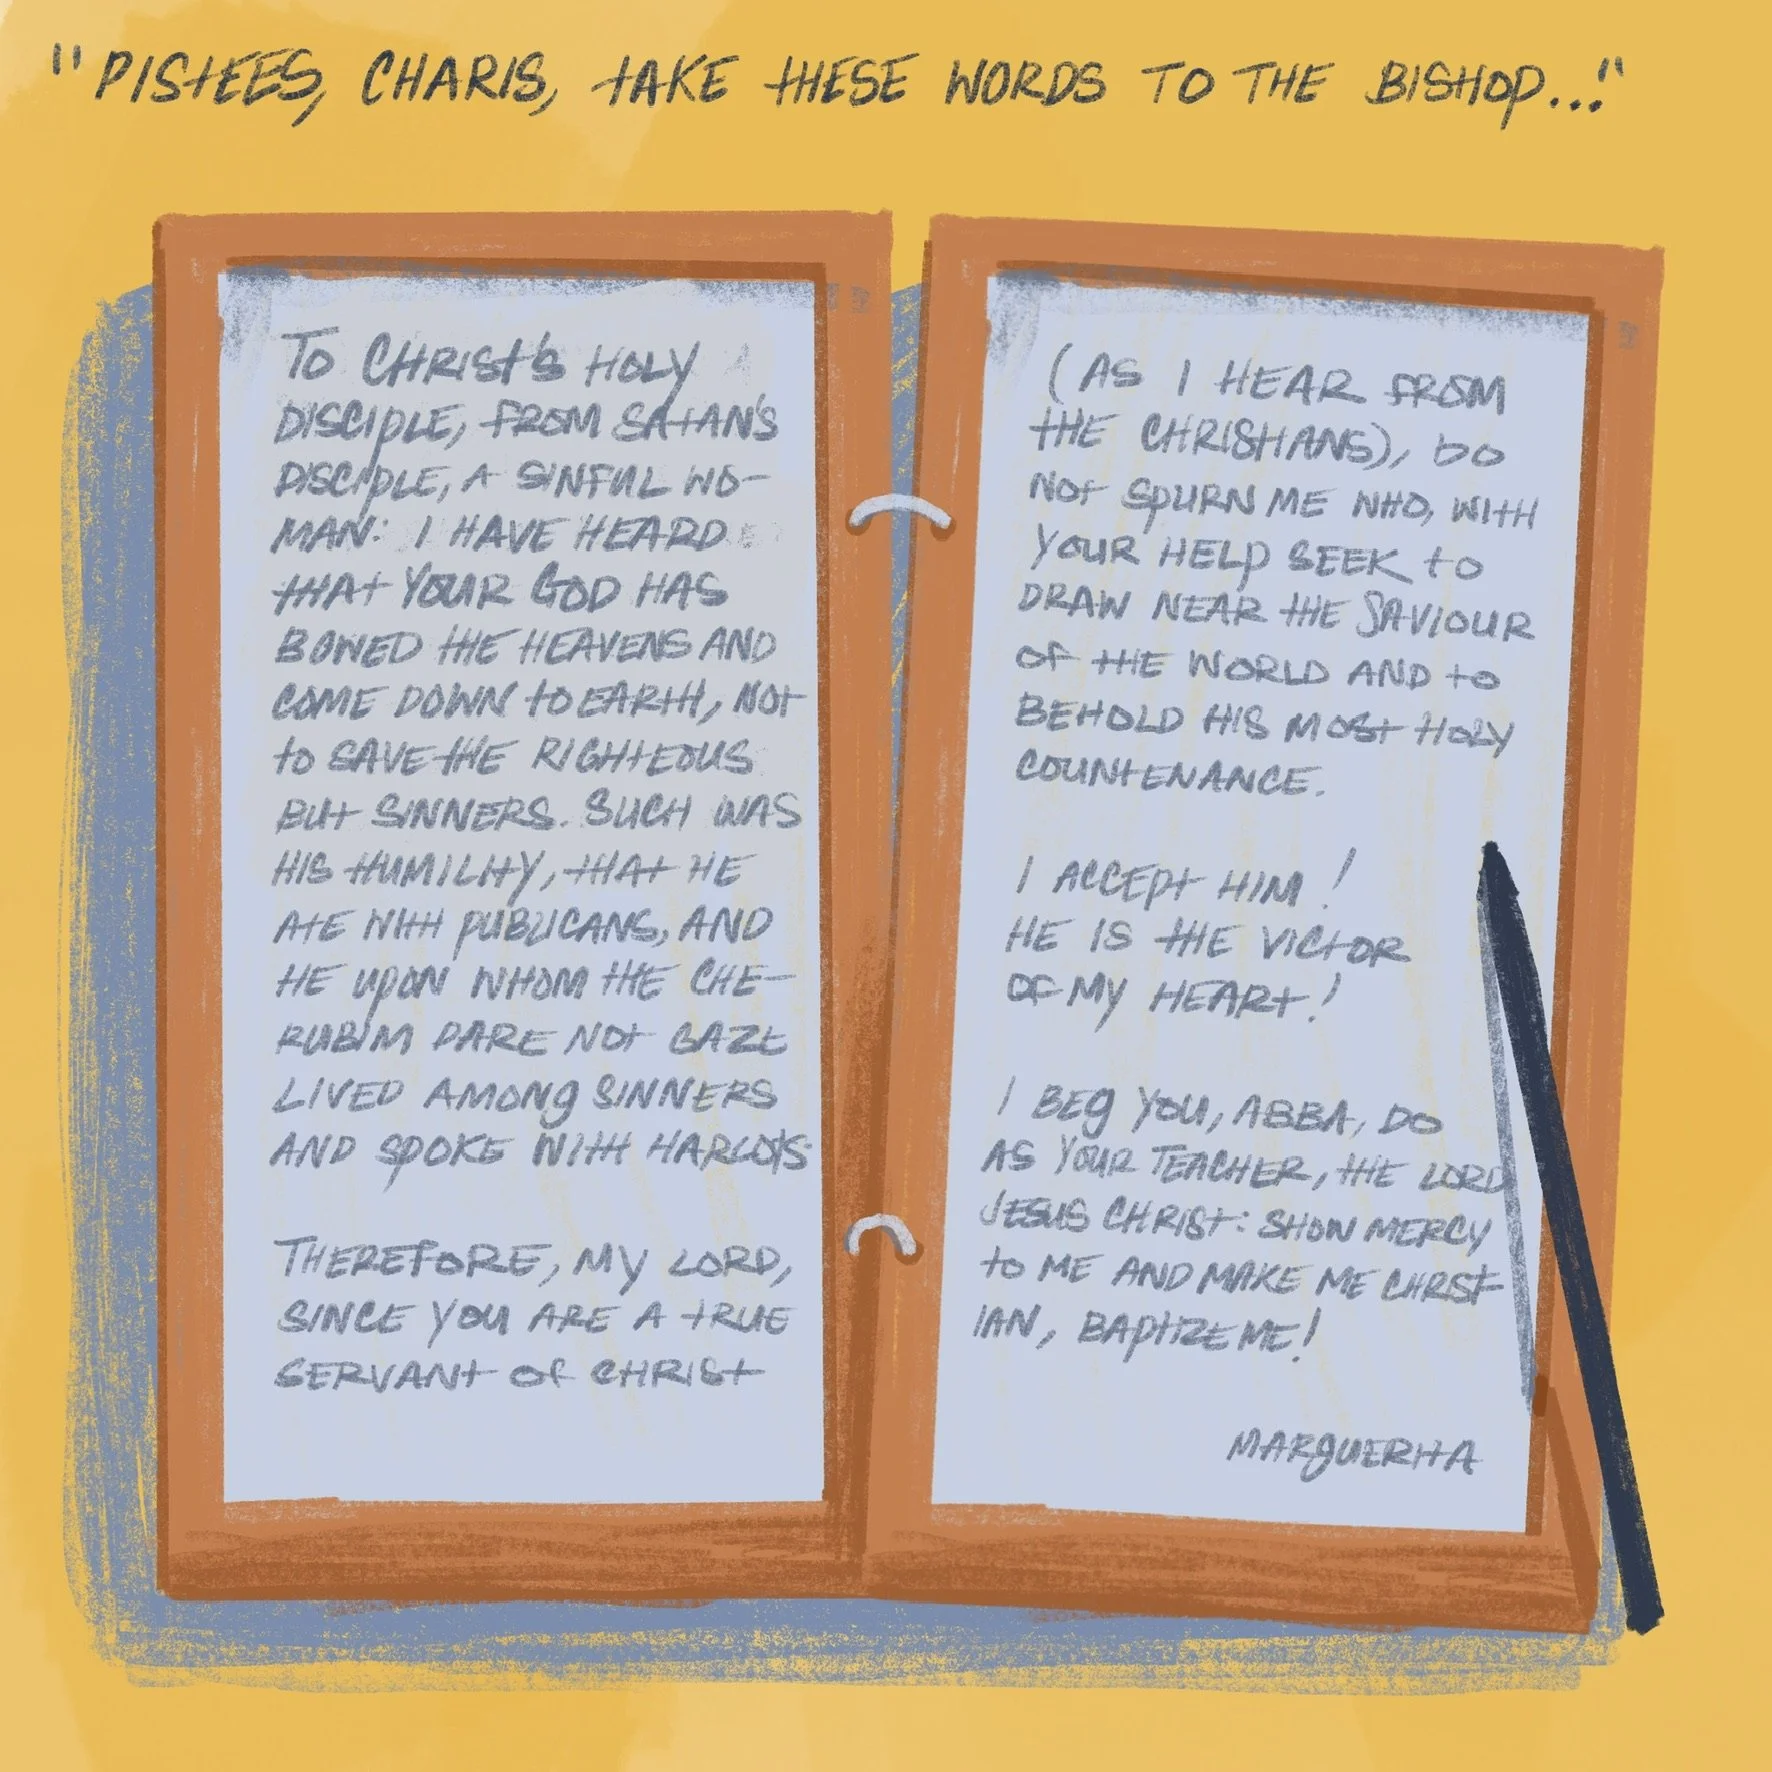 "PISTEES, CHARIS, TAKE THESE WORDS TO THE BISHOP...!"
TO CHRIST'S HOLY
DISCIPLE, FROM SATAN'S
DISCIPLE, A SINFUL WO-
MAN: I HAVE HEARD
THAT YOUR GOD HAS
BOWED THE HEAVENS AND
COME DOWN TO EARTH, NOT
TO SAVE THE RIGHTEOUS
BUT SINNERS. SUCH WAS
HIS HUMILITY, THAT HE
ATE WITH PUBLICANS, AND
HE UPON WHOM THE CHE-
RUBIM DARE NOT GAZE
LIVED AMONG SINNERS
AND SPOKE WITH HARLOTS.
THEREFORE, MY LORD,
SINCE YOU ARE A TRUE
SERVANT OF CHRIST
(AS I HEAR FROM
THE CHRISTIANS), DO
NOT SPURN ME WHO, WITH
YOUR HELP SEEK TO
DRAW NEAR THE SAVIOUR
OF THE WORLD AND TO
BEHOLD HIS MOST HOLY
COUNTENANCE.
I ACCEPT HIM!
HE IS THE VICTOR
OF MY HEART!
I BEG YOU, ABBA, DO
AS YOUR TEACHER, THE LORD
JESUS CHRIST: SHOW MERCY
TO ME AND MAKE ME CHRIST
IAN, BAPTIZE ME!
MARGUERITA